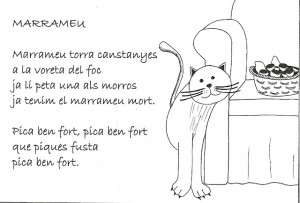 MARRAMEU
Marrameu torra canstanyes
a la voreta del foc
ja li peta una als morros
ja tenim el marrameu mort.
Pica ben fort, pica ben fort
que piques fusta
pica ben fort.